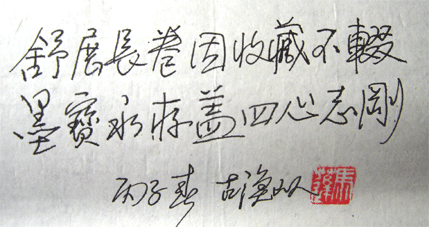 舒展長卷因收藏不輟
墨寶永存蓋四心志剛
丙子春